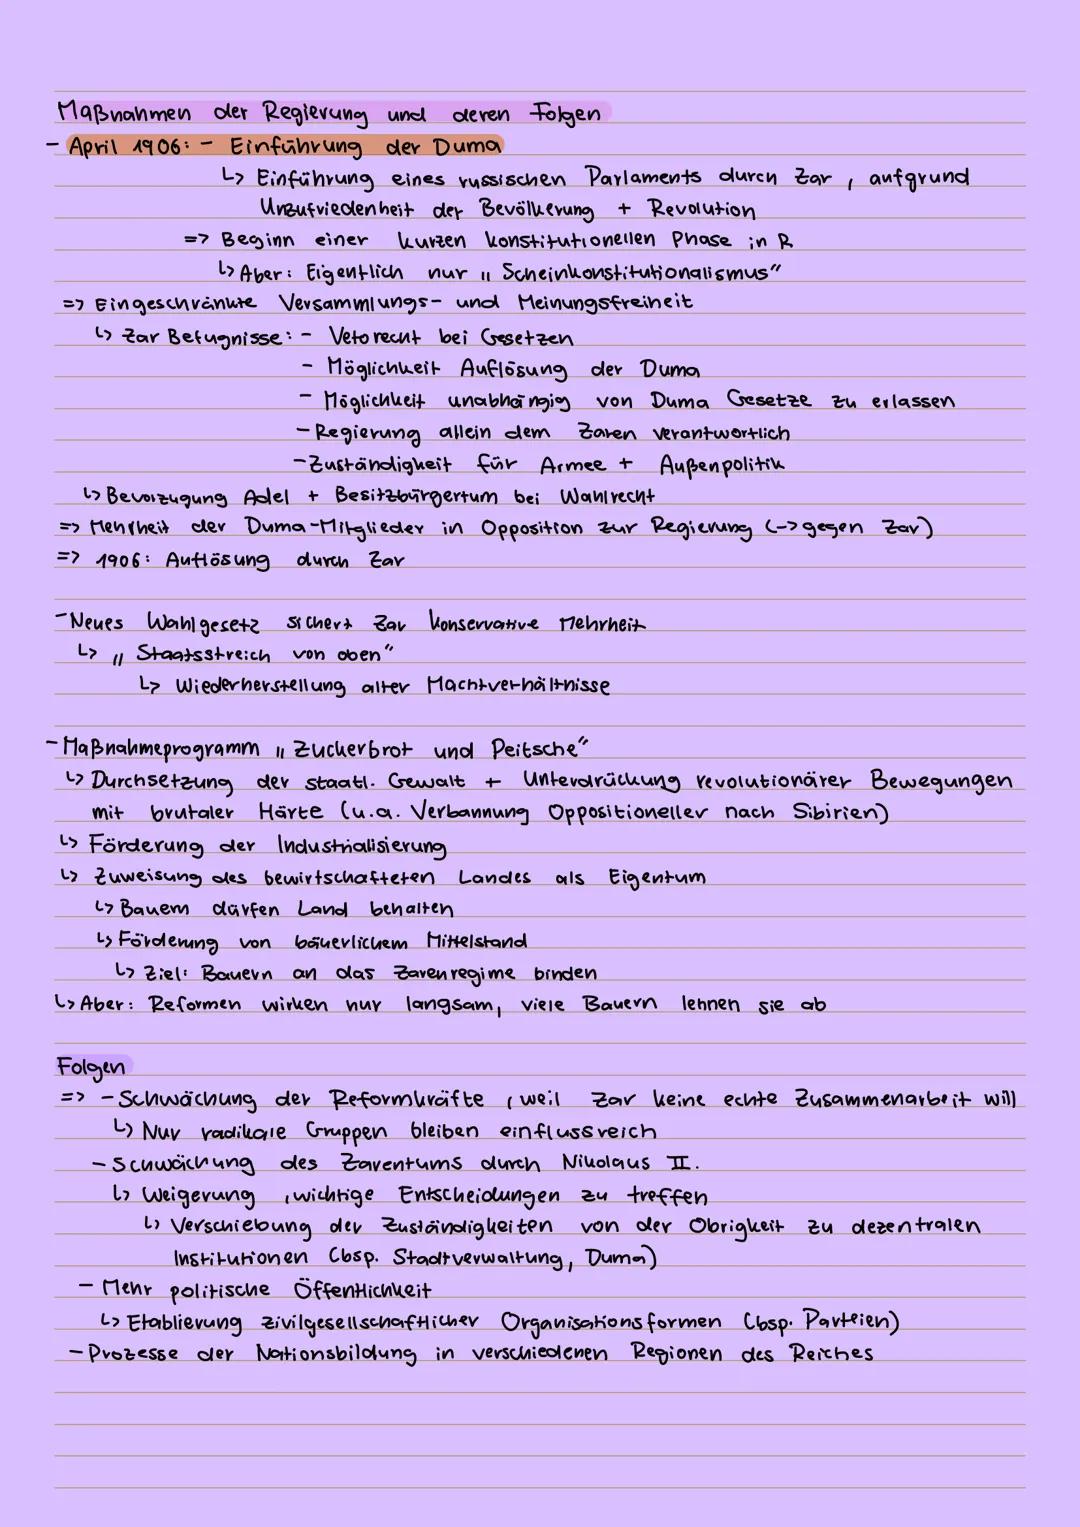 Maßnahmen der Regierung und deren Folgen
- April 1906: - Einführung der Duma
↳ Einführung eines russischen Parlaments durch Zar, aufgrund
Unzufriedenheit der Bevölkerung + Revolution
=> Beginn einer kurzen konstitutionellen Phase in R
↳ Aber: Eigentlich nur „Scheinkonstitutionalismus“
=> Eingeschränkte Versammlungs- und Meinungsfreiheit
↳ Zar Befugnisse: - Vetorecht bei Gesetzen
- Möglichkeit Auflösung der Duma
- Möglichkeit unabhängig von Duma Gesetze zu erlassen
- Regierung allein dem Zaren verantwortlich
- Zuständigkeit für Armee + Außenpolitik
↳ Bevorzugung Adel + Besitzbürgertum bei Wahlrecht
=> Mehrheit der Duma-Mitglieder in Opposition zur Regierung (-> gegen Zar)
=> 1906: Auflösung durch Zar
- Neues Wahlgesetz sichert Zar konservative Mehrheit
↳ „Staatsstreich von oben“
↳ Wiederherstellung alter Machtverhältnisse
- Maßnahmeprogramm „Zuckerbrot und Peitsche“
↳ Durchsetzung der staatl. Gewalt + Unterdrückung revolutionärer Bewegungen
mit brutaler Härte (u.a. Verbannung Oppositioneller nach Sibirien)
↳ Förderung der Industrialisierung
↳ Zuweisung des bewirtschafteten Landes als Eigentum
↳ Bauern dürfen Land behalten
↳ Förderung von bäuerlichem Mittelstand
↳ Ziel: Bauern an das Zarenregime binden
↳ Aber: Reformen wirken nur langsam, viele Bauern lehnen sie ab
Folgen
=> - Schwächung der Reformkräfte, weil Zar keine echte Zusammenarbeit will
↳ Nur radikale Gruppen bleiben einflussreich
- Schwächung des Zarentums durch Nikolaus II.
↳ Weigerung, wichtige Entscheidungen zu treffen
↳ Verschiebung der Zuständigkeiten von der Obrigkeit zu dezentralen
Institutionen (bsp. Stadtverwaltung, Duma)
- Mehr politische Öffentlichkeit
↳ Etablierung zivilgesellschaftlicher Organisationsformen (bsp. Parteien)
- Prozesse der Nationsbildung in verschiedenen Regionen des Reiches